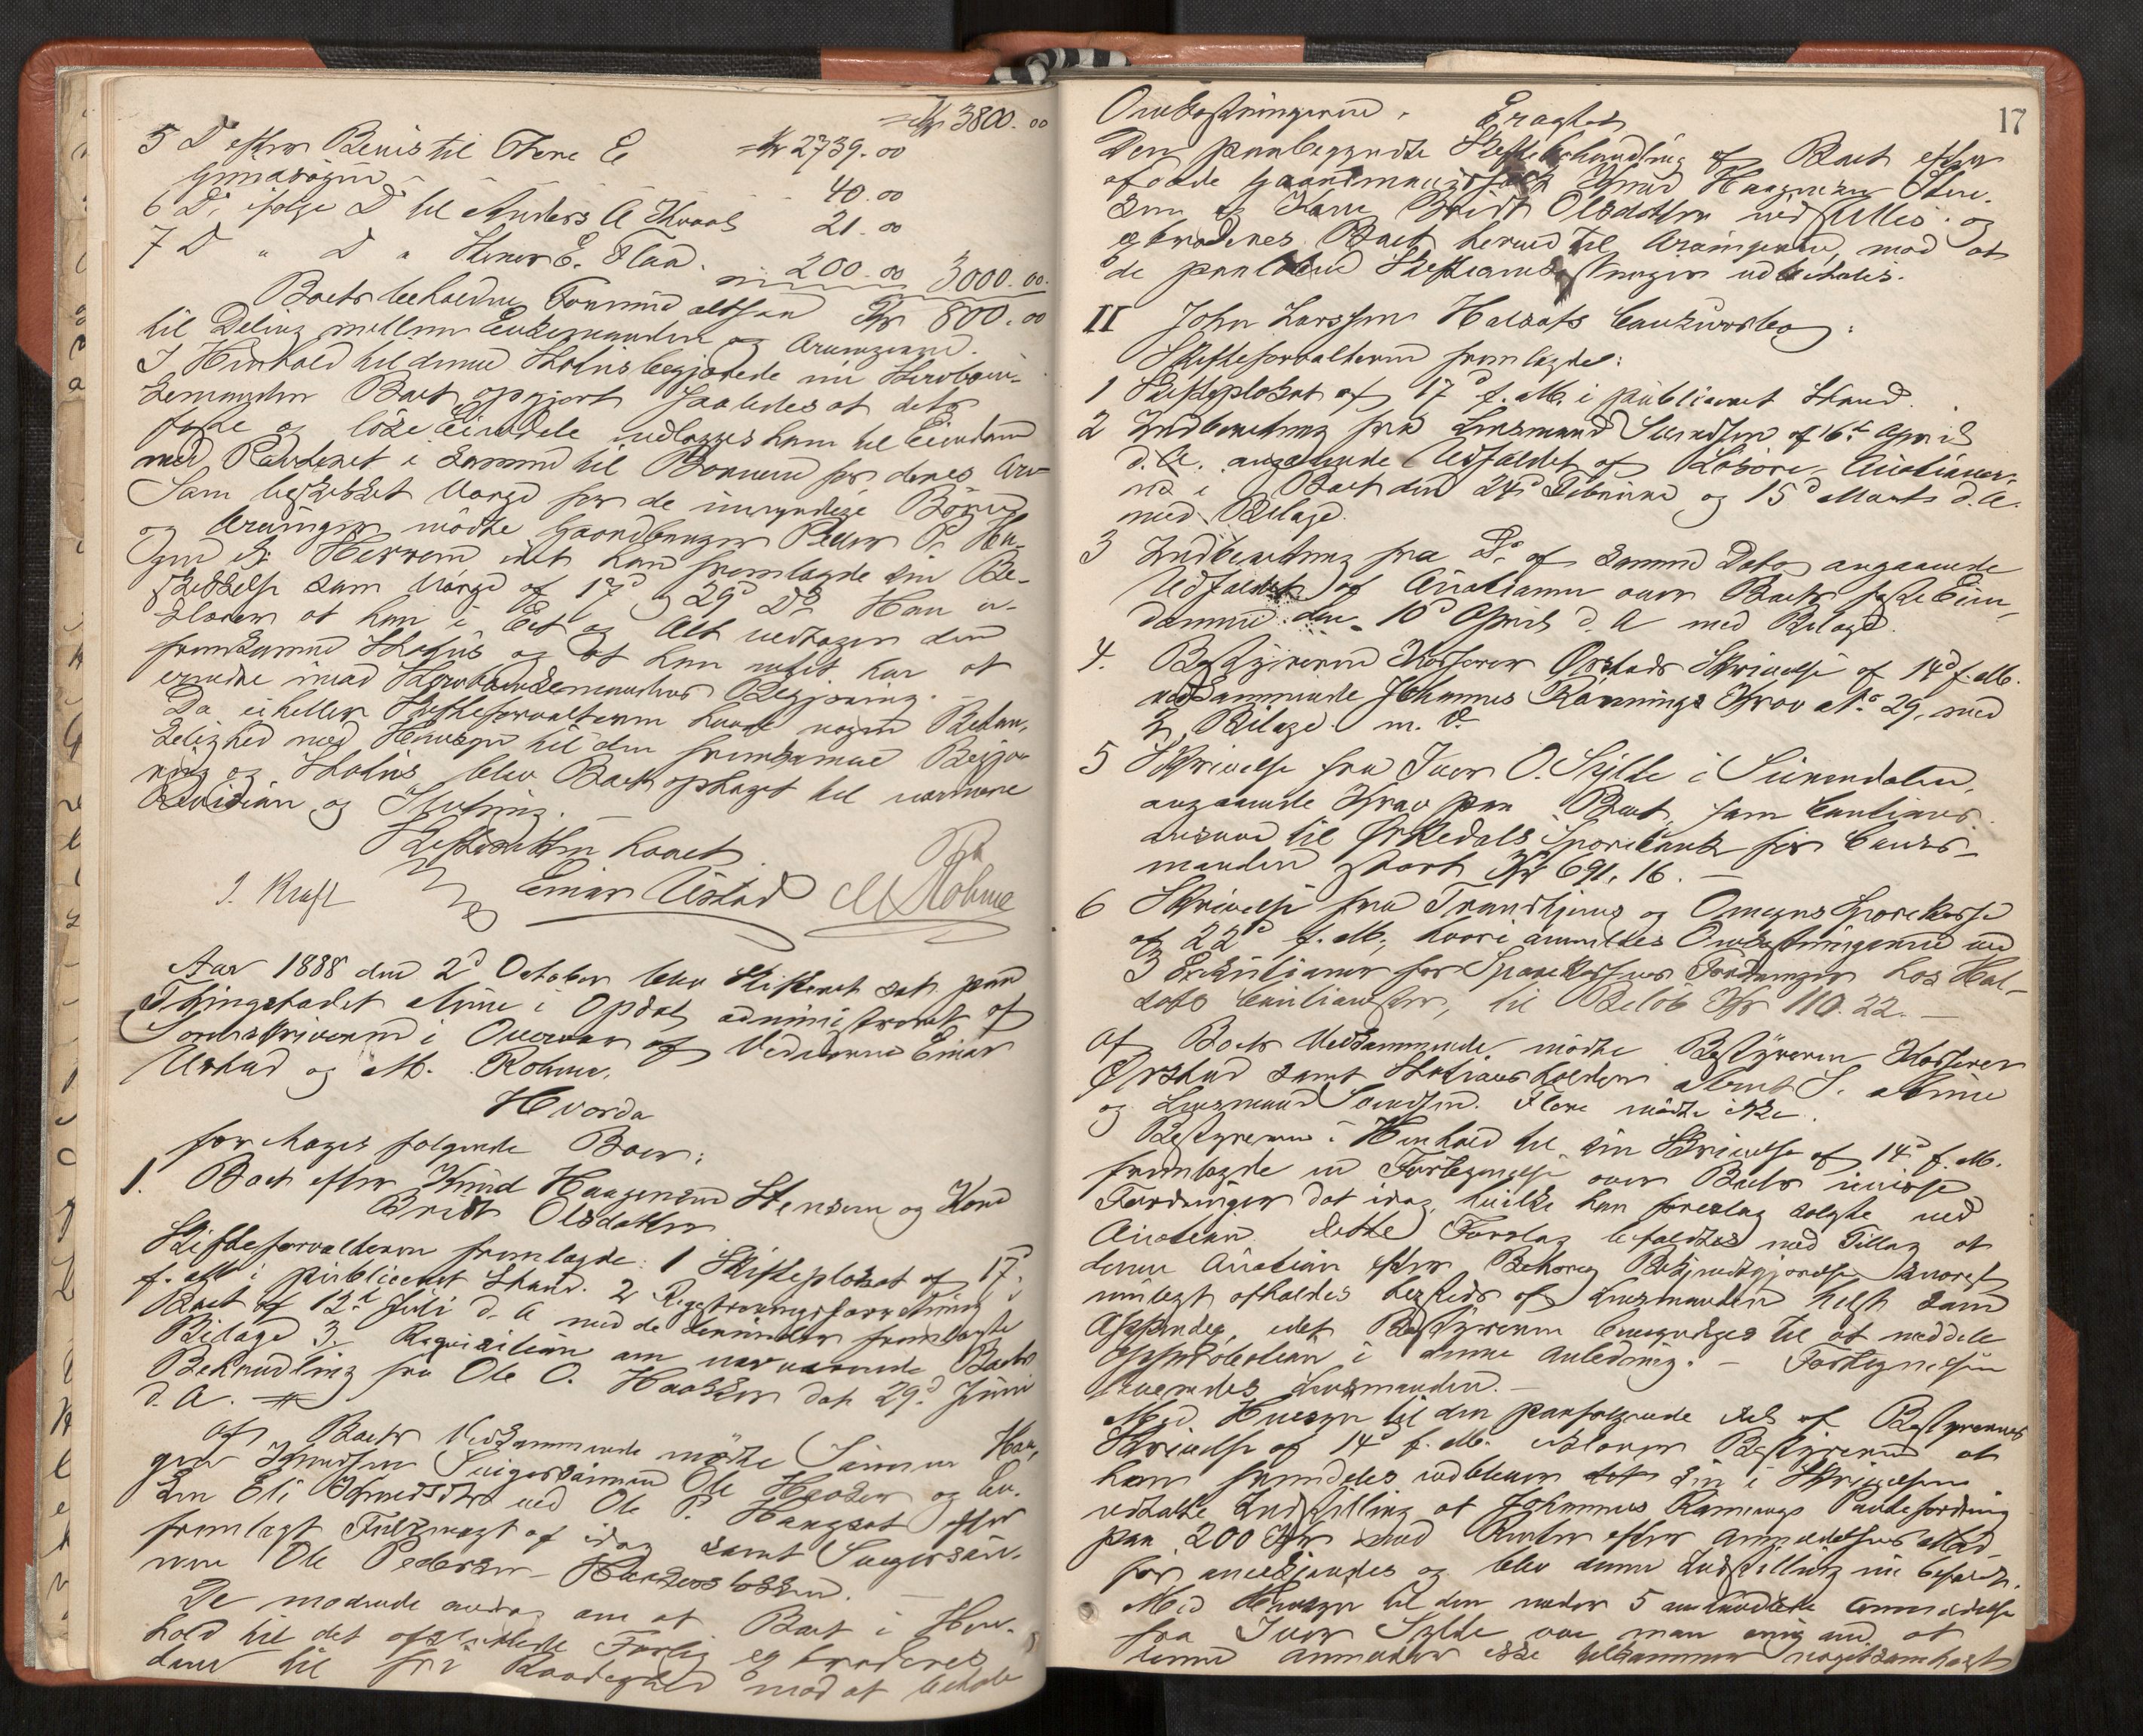 = Kr 3800.00
5 Do efter Bevis til Thore E = Kr 2739.00
Gunasögn - - - - 40.00
6 Do, ifølge Do til Anders A Kvaal 21.00
7 Do " Do " Stener E. Flaa. 200.00 3000.00.
Boets beholdne Formue altsaa Kr 800.00
til Deling mellem Enkemanden og Arvingerne.
I Henhold til denne Status begjærede nu
Enkemanden Boet opgjort saaledes at dets
faste og løse Eiendele udlægges ham til Eiendom
med Panteret i samme til Børnene for deres Arv
Som beskikket Værge for de umyndige Børn
og Arvinger mødte Gaardbruger Peder P.
idet han fremlagde sin Be-
skikkelse som Værge af 17d, 29d Do. Han er-
klærer at han i Eet og Alt vedtager den
fremkomne Status og at han intet har at
erindre imod Begjæring.
Da ei heller Skifteforvalteren havde nogen Betæn-
kelighed med Hensyn til den fremkomne Begjæ-
ring og Status blev Boet optaget til nærmere
Revision og Slutning.
Skifteretten hævet.
J. Kraft Einar Ustad M Rohme
Aar 1888 den 2d October blev Skifteret sat paa
Thingstedet Aune i Opdal administreret af
Sorenskriveren i Overvær af Vidnerne Einar
Ustad og M. Rohme.
Hvorda
foretages følgende Boer:
1. Boet efter Knud Haagensen Stensen og Kone
Bridt Olsdatter
Skifteforvalteren fremlagde: 1 Skifteplakat af 17d
f. M. i publiceret Stand. 2 Registreringsforretning
Boet af 12te Juli d. A med de derunder fremlagte
Bilage 3. Requisition om nærværende Boets
Behandling fra Ole O. Haaker dat. 29d Juni
d. A.
Af Boets Vedkommende mødte Sønnen Haa-
gen Knudsen Svigersønnen Ole Haaker og En-
ken Eli Knudsdtr ved Ole P. Hangset efter
fremlagt Fuldmagt af idag samt Svigersøn-
nen Ole Pedersen
De mødende androg om at Boet i Hen-
hold til det Forlig extraderes
dem til fri Raadighed mod at betale
17
Omkostningerne. Eragtet
Den paabegyndte Skiftebehandling af Boet efter
afdøde Gaardmandsfolk Knud Haagensen Sten-
sen og Kone Bridt Olsdatter indstilles og
extraderes Boet herved til Arvingerne, mod at
de paaløbne Skifteomkostninger udbetales.
II John Larssen Halsets Concursbo:
Skifteforvalteren fremlagde:
1 Skifteplakat af 17d f. M. i publiceret Stand.
2 Indberetning fra Lensmand Svendsen af 16de April
d. A. angaaende Udfaldet af Løsøre-Auctioner-
ne i Boet den 24d Februar og 15d Marts d. A.
med Bilage.
3 Indberetning fra Do af samme Dato angaaende
Udfaldet af Auctionen over Boets faste Eien-
domme den 10d April d. A med Bilage.
4. Bestyreren Kasserer Ørstads Skrivelse af 14d f. M.
vedkommende Johannes Rønnings Krav No 29, med
3 Bilage m. V.
5 Skrivelse fra Iver O. Sylte i Surendalen,
angaaende Krav paa Boet, som Cautions-
ansvar til Ørkedals Sparebank for Concurs-
manden stort Kr 691,16. —
6 Skrivelse fra Trondhjems og Omegns Sparekasse
af 22d f. M., hvori anmeldes Omkostningerne ved
3 Exekutioner for Sparekassens Fordringer hos Hal-
sets Cautionister, til Beløb Kr 110.22. —
Af Boets Vedkommende mødte Bestyreren Kasserer
Ørstad samt Stationsholder Arnt S. Aune
og Lensmand Svendsen. Flere mødte ikke.
Bestyreren i Henhold til sin Skrivelse af 14d f. M.
fremlagde en Fortegnelse over Boets uvisse
Fordringer dat idag hvilke han foreslog solgte ved
Auction. Dette Forslag befaldtes med Tillæg at
denne Auction efter Behørig Bekjendtgjørelse snarest
muligt afholdes herteds af Lensmanden helst som
Appendix, idet Bestyreren bemyndiges til at meddele
Approbation i denne Anledning. — Fortegnelsen
leveredes Lensmanden. —
Med Hensyn til den paafølgende Del af Bestyrerens
Skrivelse af 14d f. M. erklærer Bestyreren at
han fremdeles vedbliver sin i Skrivelsen
udtalte Indstilling at Johannes Rønnings Pantefordring
paa 200 Kr med Renter efter Anmeldelsens
for anerkjendes og blev denne Indstilling nu befaldt.
Med Hensyn til den under 5 Anmeldelse
fra Iver Sylte var man enig om at
denne Anmelder ikke tilkommer nogetsomhelst